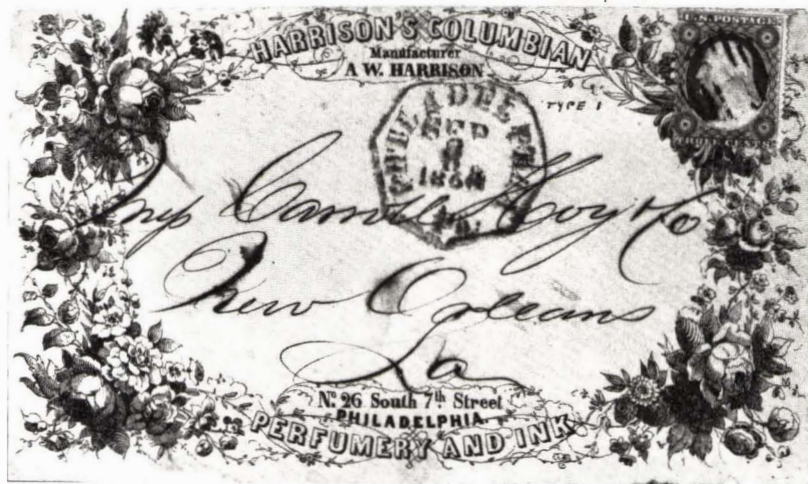 HARRISON'S COLUMBIAN
Manufacturer
A.W. HARRISON
U.S. POSTAGE
TYPE 1
PHILADELPHIA
SEP
New Orleans
La
No. 26 South 7th Street
PHILADELPHIA.
PERFUMERY AND INK